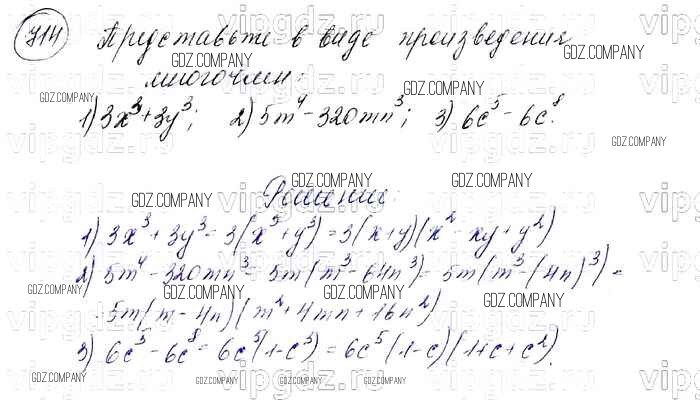 714 Представьте в виде произведения
многочлен:
1) 3x³+3y³; 2) 5m⁴-320mn³; 3) 6c⁵-6c⁸.
Решение:
1) 3x³+3y³=3(x³+y³)=3(x+y)(x²-xy+y²)
2) 5m⁴-320mn³=5m(m³-64n³)=5m(m³-(4n)³)=
=5m(m-4n)(m²+4mn+16n²)
3) 6c⁵-6c⁸=6c⁵(1-c³)=6c⁵(1-c)(1+c+c²).
GDZ.COMPANY
vipgdz.ru